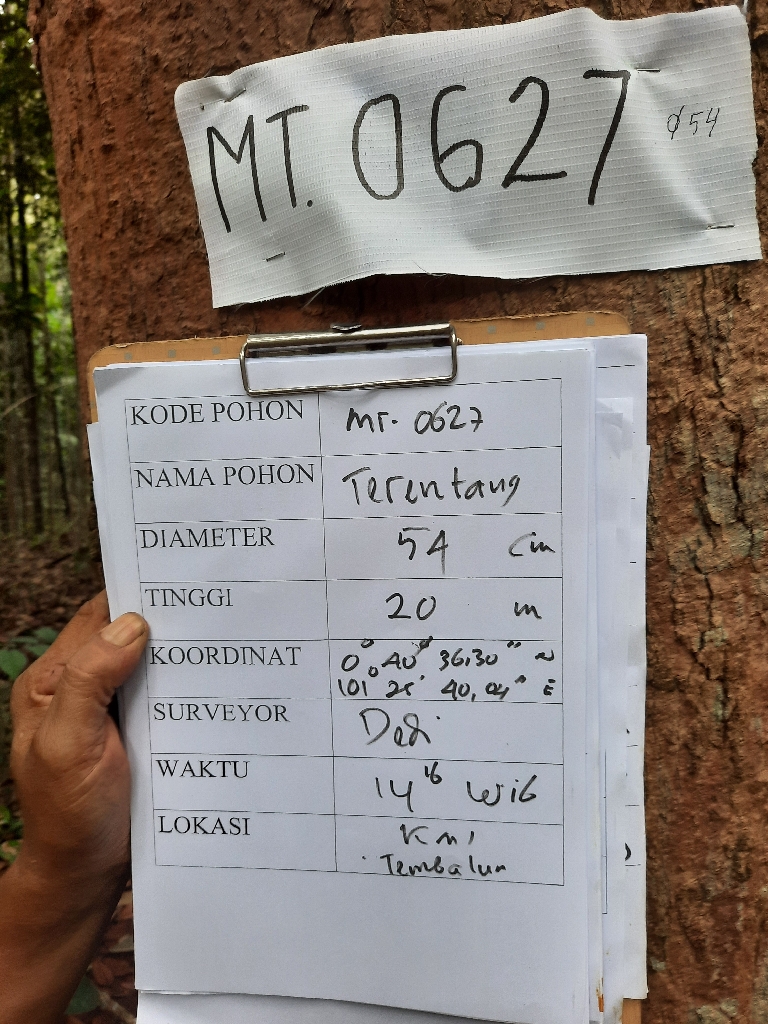 MT. 0627 Ø54
KODE POHON MT. 0627
NAMA POHON Terentang
DIAMETER 54 cm
TINGGI 20 m
KOORDINAT 0° 40' 36,30" N
101° 25' 40,04" E
SURVEYOR Dedi
WAKTU 14 16 WIB
LOKASI KM1
Tembalun